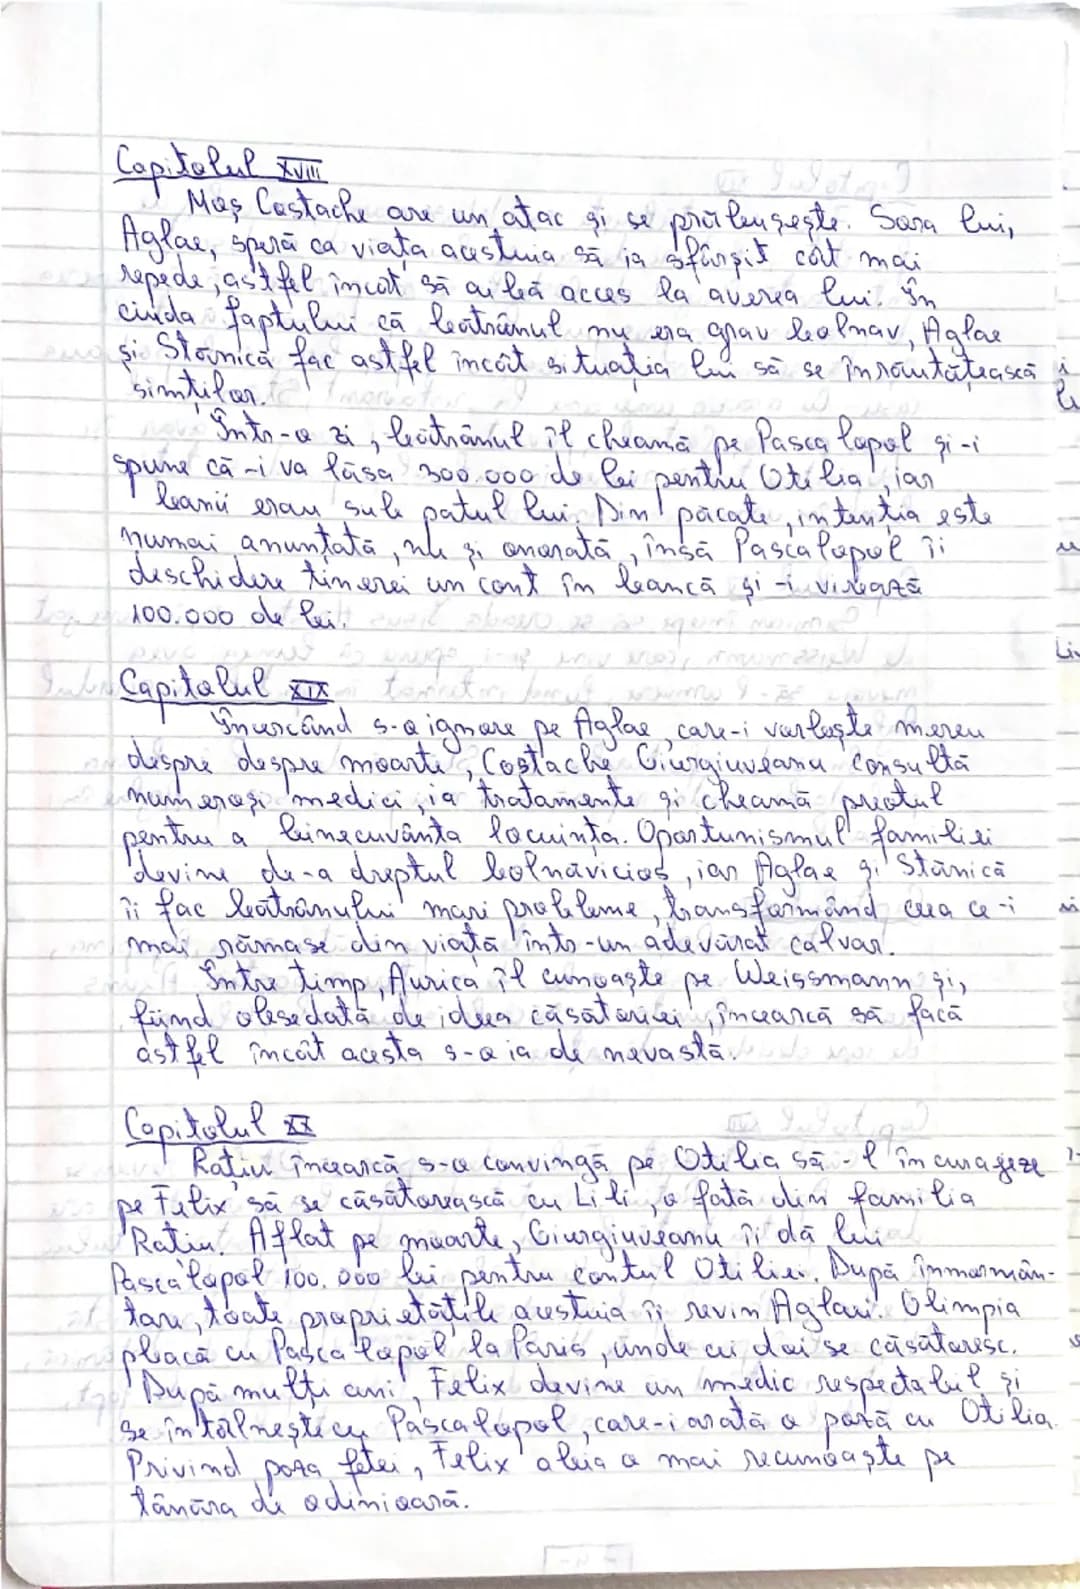 Capitolul XVIII
Moș Costache are un atac și se prăbușește. Sora lui,
Aglae, speră ca viața acestuia să ia sfârșit cât mai
repede, astfel încât să aibă acces la averea lui. În
ciuda faptului că bătrânul nu era grav bolnav, Aglae
și Stănică fac astfel încât situația lui să se înrăutățească
simțitor.
Într-o zi, bătrânul îl cheamă pe Pascalopol și-i
spune că-i va lăsa 300.000 de lei pentru Otilia, iar
banii erau sub patul lui. Din păcate, intenția este
numai anunțată, nu și onorată, însă Pascalopol îi
deschidere tinerei un cont în bancă și-i virează
100.000 de lei.
Capitolul XIX
Încercând s-o ignore pe Aglae, care-i vorbește mereu
despre despre moarte, Costache Giurgiuveanu consultă
numeroși medici, ia tratamente și cheamă preotul
pentru a binecuvânta locuința. Oportunismul familiei
devine de-a dreptul bolnăvicios, iar Aglae și Stănică
îi fac bătrânului mari probleme, transformând ceea ce-i
mai rămase din viață într-un adevărat calvar.
Între timp, Aurica îl cunoaște pe Weissmann și,
fiind obsedată de ideea căsătoriei, încearcă să facă
astfel încât acesta s-o ia de nevastă.
Capitolul XX
Rațiu încearcă s-o convingă pe Otilia să-l încurajeze
pe Felix să se căsătorească cu Lili, o fată din familia
Rațiu. Aflat pe moarte, Giurgiuveanu îi dă lui
Pascalopol 100.000 lei pentru contul Otiliei. După înmormân-
tare, toate proprietățile acestuia îi revin Aglaei. Olimpia
pleacă cu Pascalopol la Paris, unde cei doi se căsătoresc.
După mulți ani, Felix devine un medic respectabil și
se întâlnește cu Pascalopol, care-i arată o poză cu Otilia.
Privind poza fetei, Felix abia o mai recunoaște pe
tânăra de odinioară.